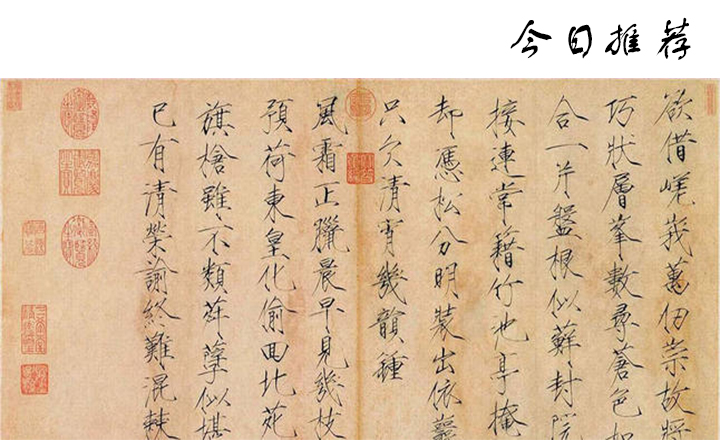 今日推荐
欲借嵯峩萬仞崇故将
巧状层峯数寻苍色如
合一片盤根似蘚封院
接連常藉竹池亭掩
却憑松分明裝出依蘿
只欠清宵幾韻鍾
風霜正臘晨早見幾枝
預荷東皇化偷回北苑
旗槍雖不類荈孽似堪
已有清榮諭終難混棘